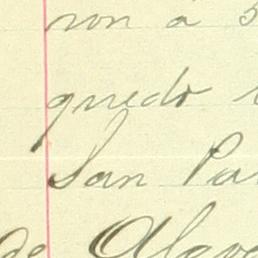 ron á 5
quedo
San Pa
de Alava